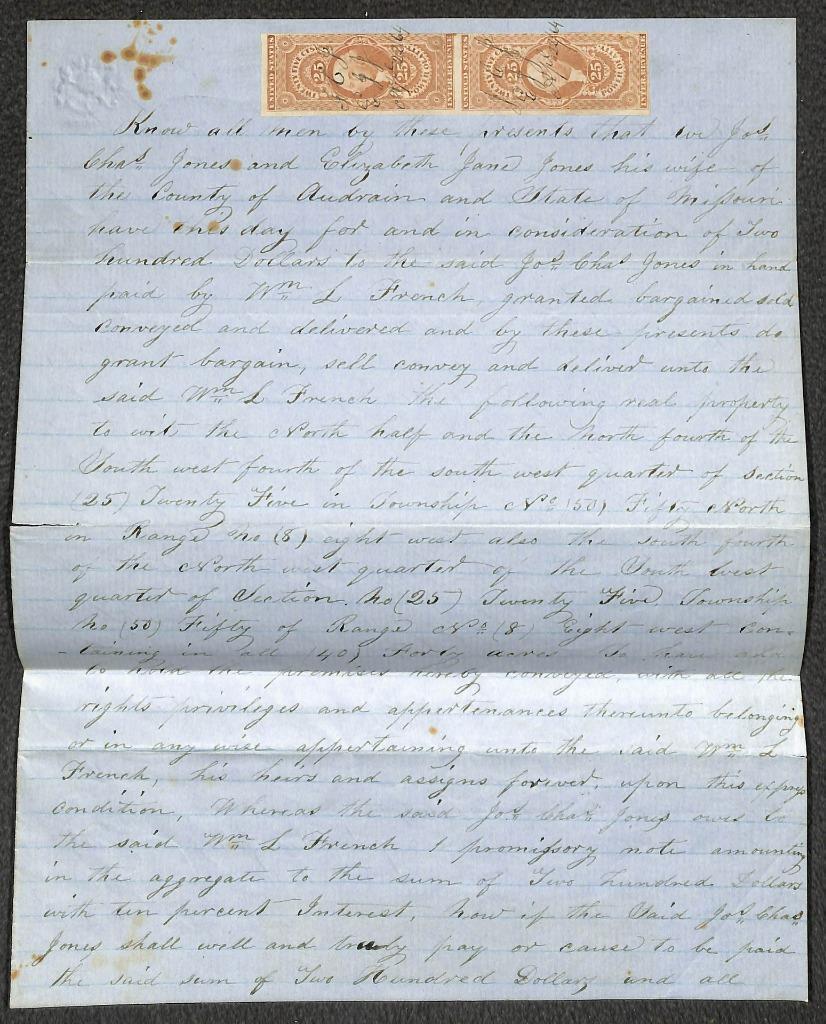 UNITED STATES 25 25 UNITED STATES 25 25
Know all men by these presents that we Jos.
Chas. Jones and Elizabeth Jane Jones his wife of
the County of Audrain and State of Missouri
have this day for and in consideration of Two
hundred Dollars to the said Jos. Chas Jones in hand
paid by Wm L French, granted bargained sold
conveyed and delivered and by these presents do
grant bargain, sell convey and deliver unto the
said Wm L French the following real property
to wit the North half and the North fourth of the
South west fourth of the south west quarter of Section
(25) Twenty Five in Township No (50) Fifty North
in Range No (8) eight west also the south fourth
of the North west quarter of the South west
quarter of Section No (25) Twenty Five, Township
No (50) Fifty of Range No (8) Eight west con-
-taining in all (40) Forty acres To have and
to hold the premises hereby conveyed, with all the
rights privileges and appertenances thereunto belonging
or in any wise appertaining unto the said Wm L
French, his heirs and assigns forever, upon this express
condition, Whereas the said Jos. Chas. Jones owes to
the said Wm L French 1 promissory note amounting
in the aggregate to the sum of Two hundred Dollars
with ten percent Interest, Now if the Said Jos. Chas.
Jones shall well and truly pay or cause to be paid
the said sum of Two Hundred Dollars and all